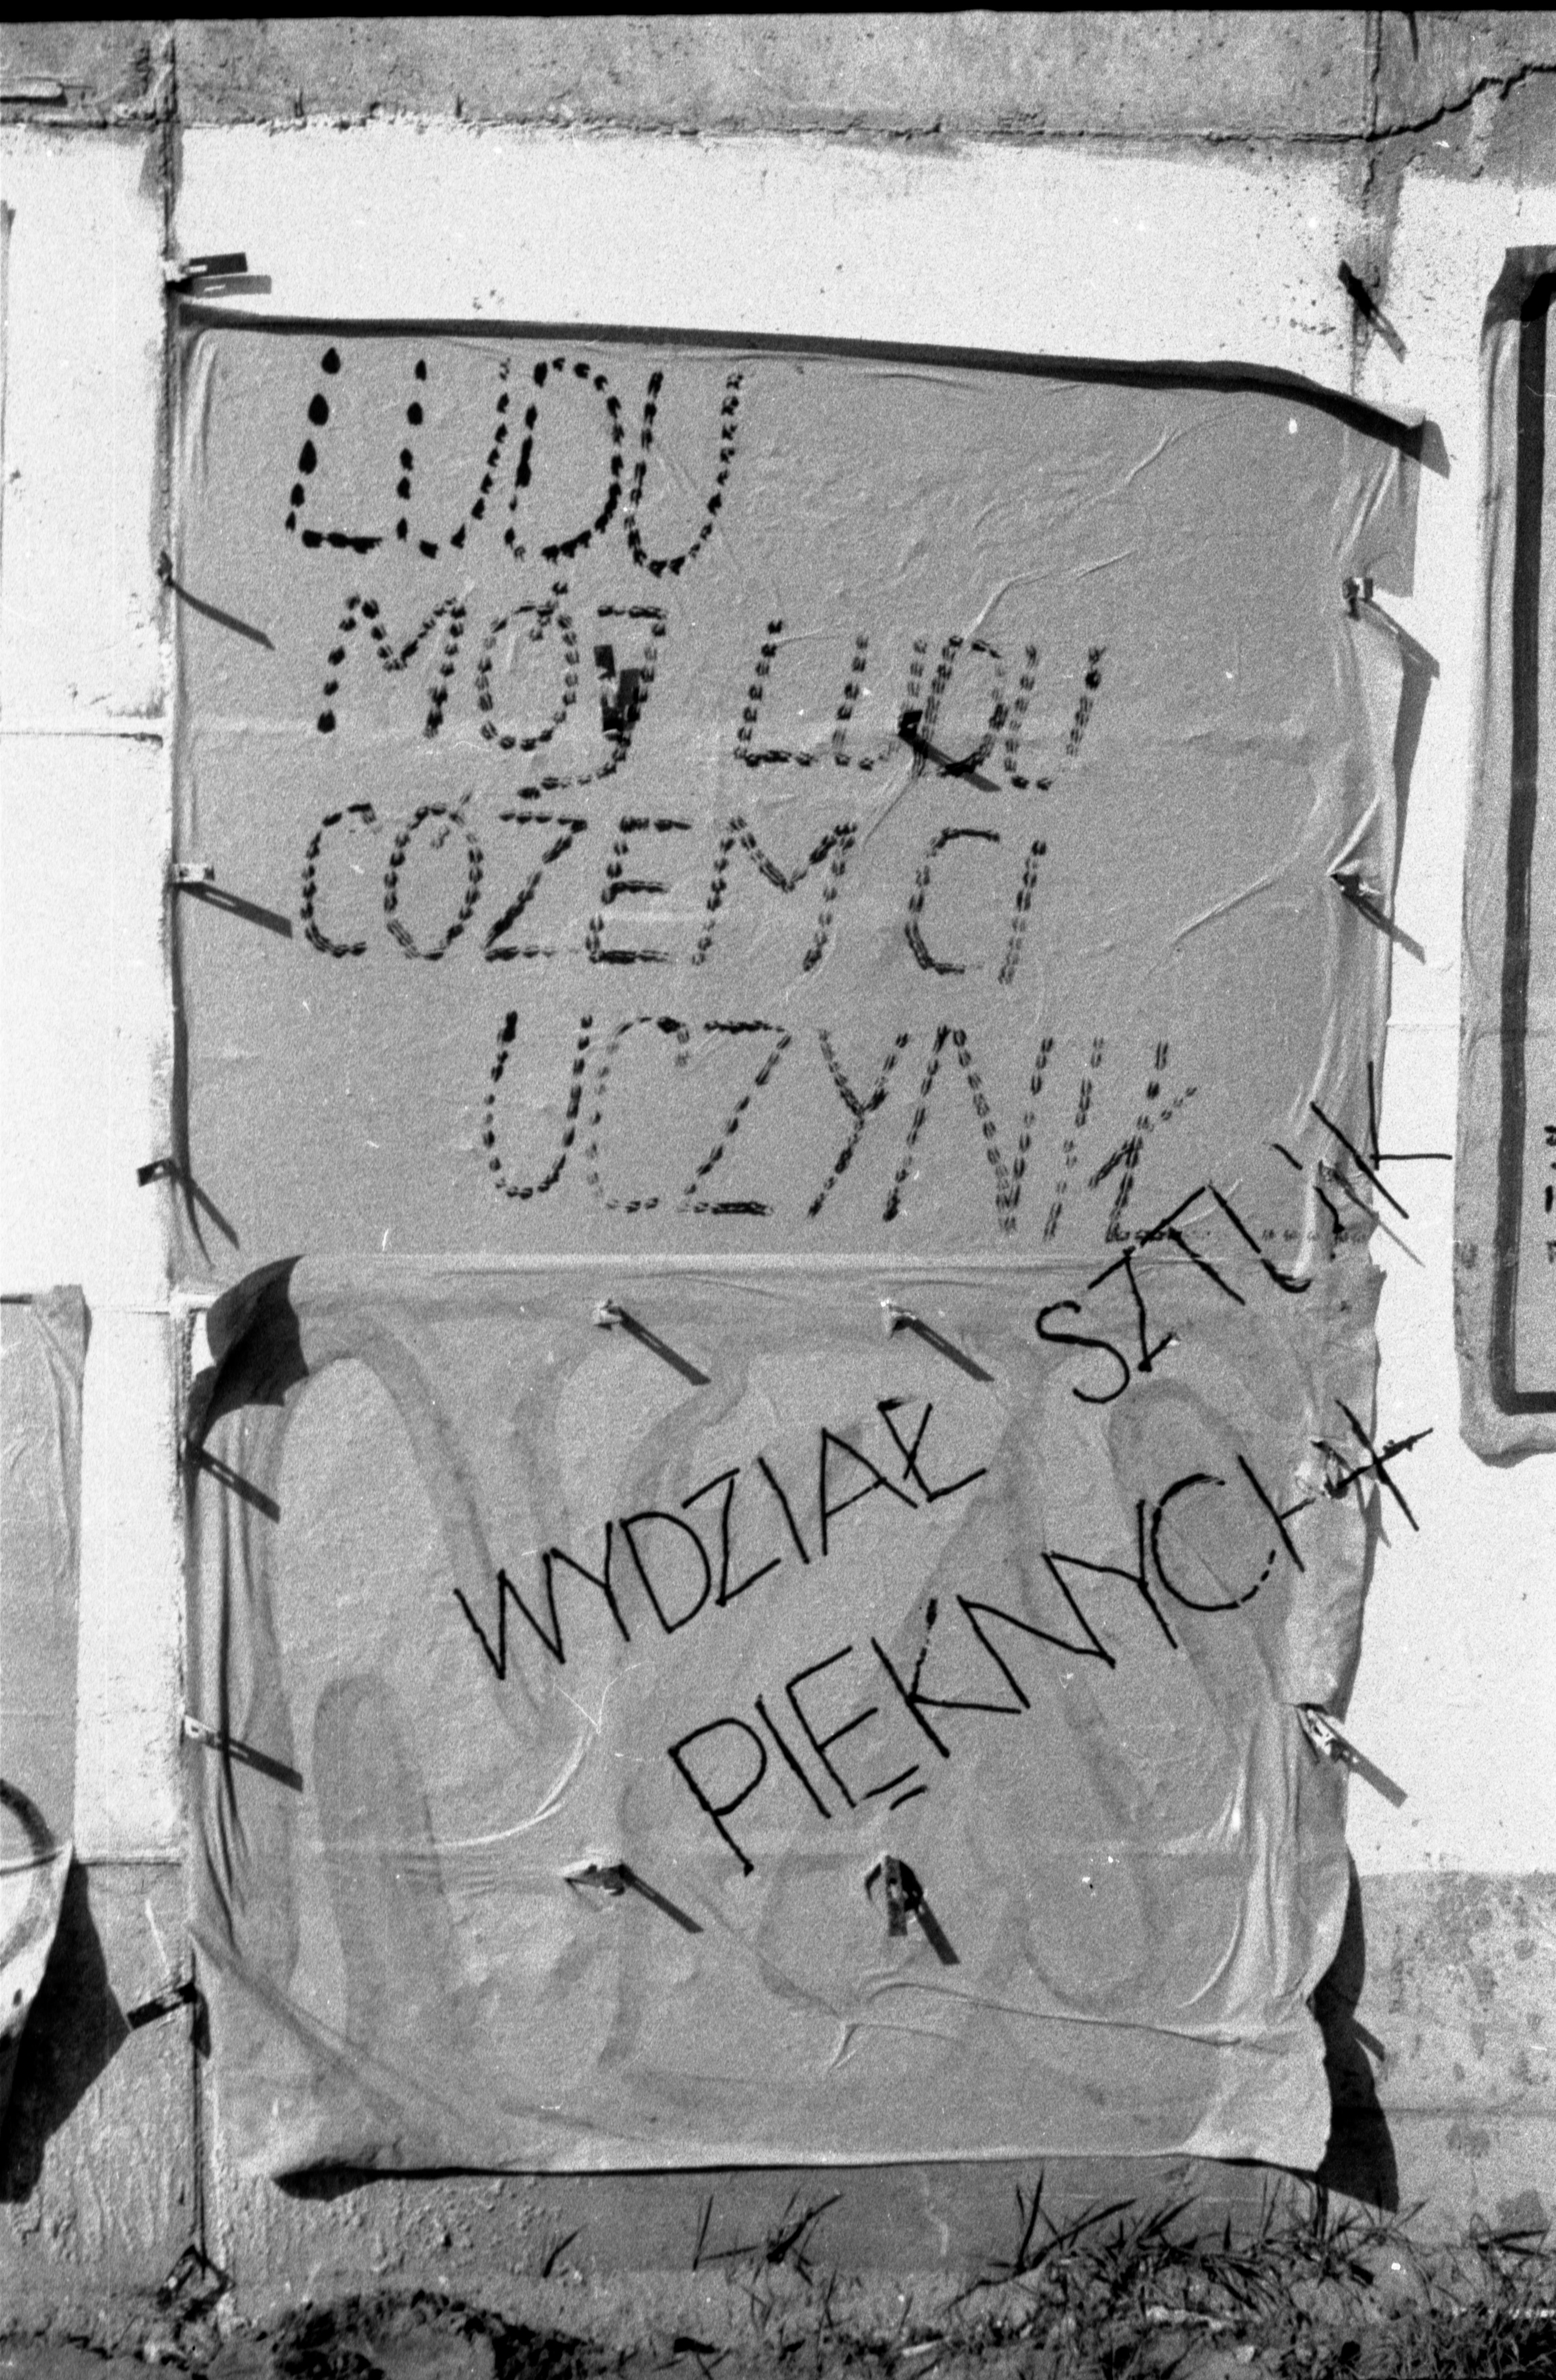 LUDU
MÓJ LUDU
CÓŻEM CI
UCZYNIŁ....
WYDZIAŁ SZTUK
PIĘKNYCH